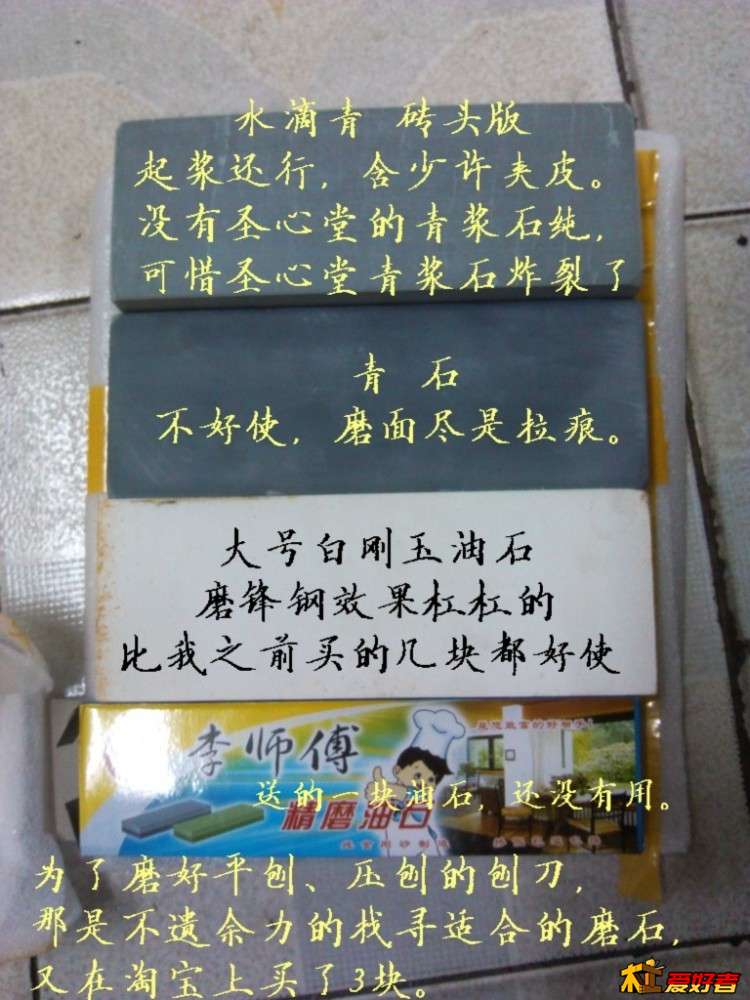 水滴青 砖头版
起浆还行，含少许夹皮。
没有圣心堂的青浆石纯，
可惜圣心堂青浆石炸裂了
青 石
不好使，磨面尽是拉痕。
大号白刚玉油石
磨锋钢效果杠杠的
比我之前买的几块都好使
李师傅
送的一块油石，还没有用。
精磨油石
为了磨好平刨、压刨的刨刀，
那是不遗余力的找寻适合的磨石，
又在淘宝上买了3块。
爱好者